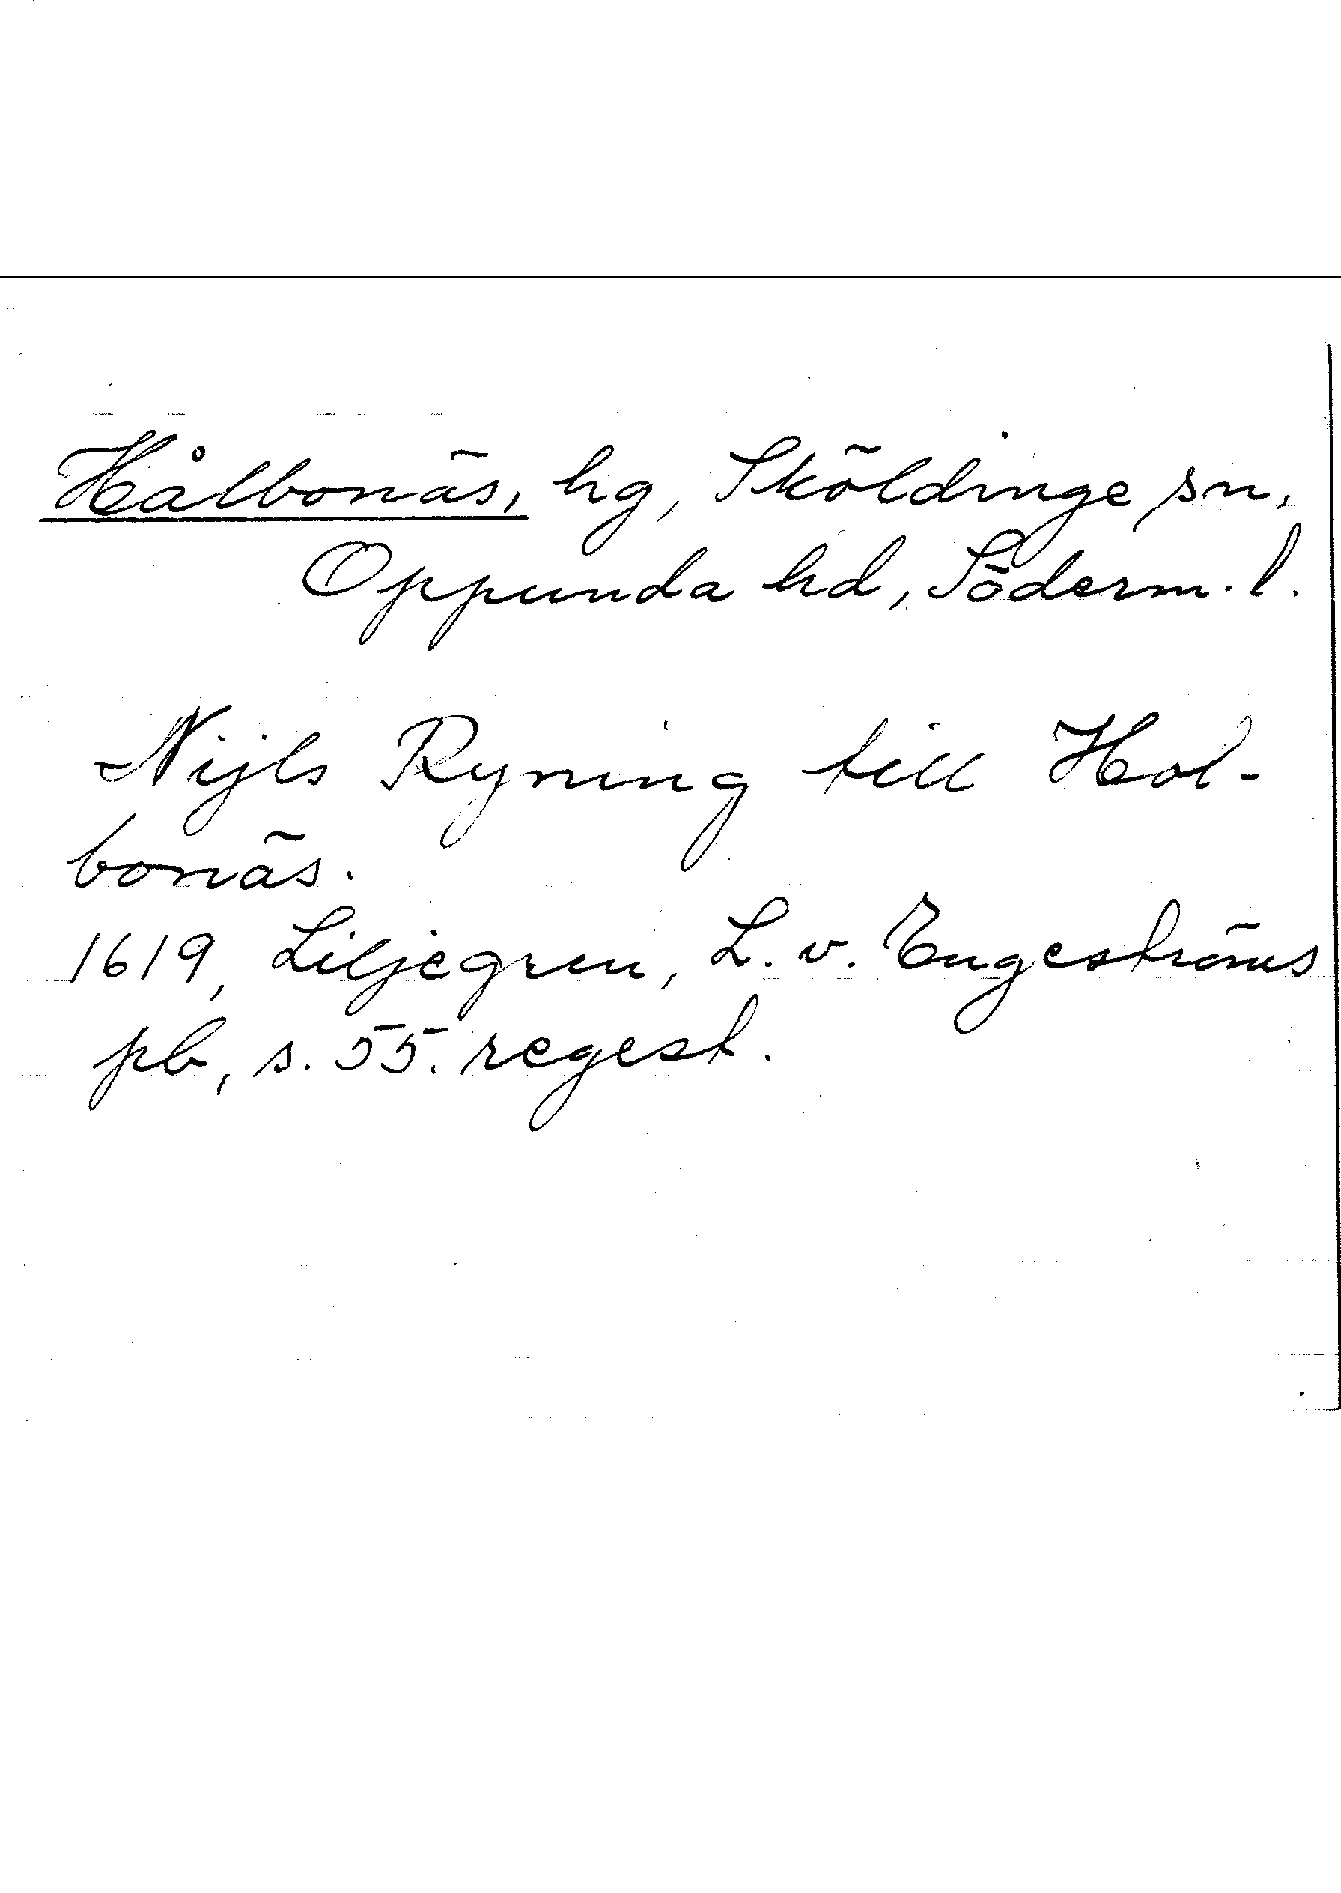 Hålbonäs, hg, Sköldinge sn,
Oppunda hd, Söderm. l.
Nijls Ryning till Hol-
bonäs.
1619, Liljegren, L. v. Engeströms
pb, s. 55. regest.